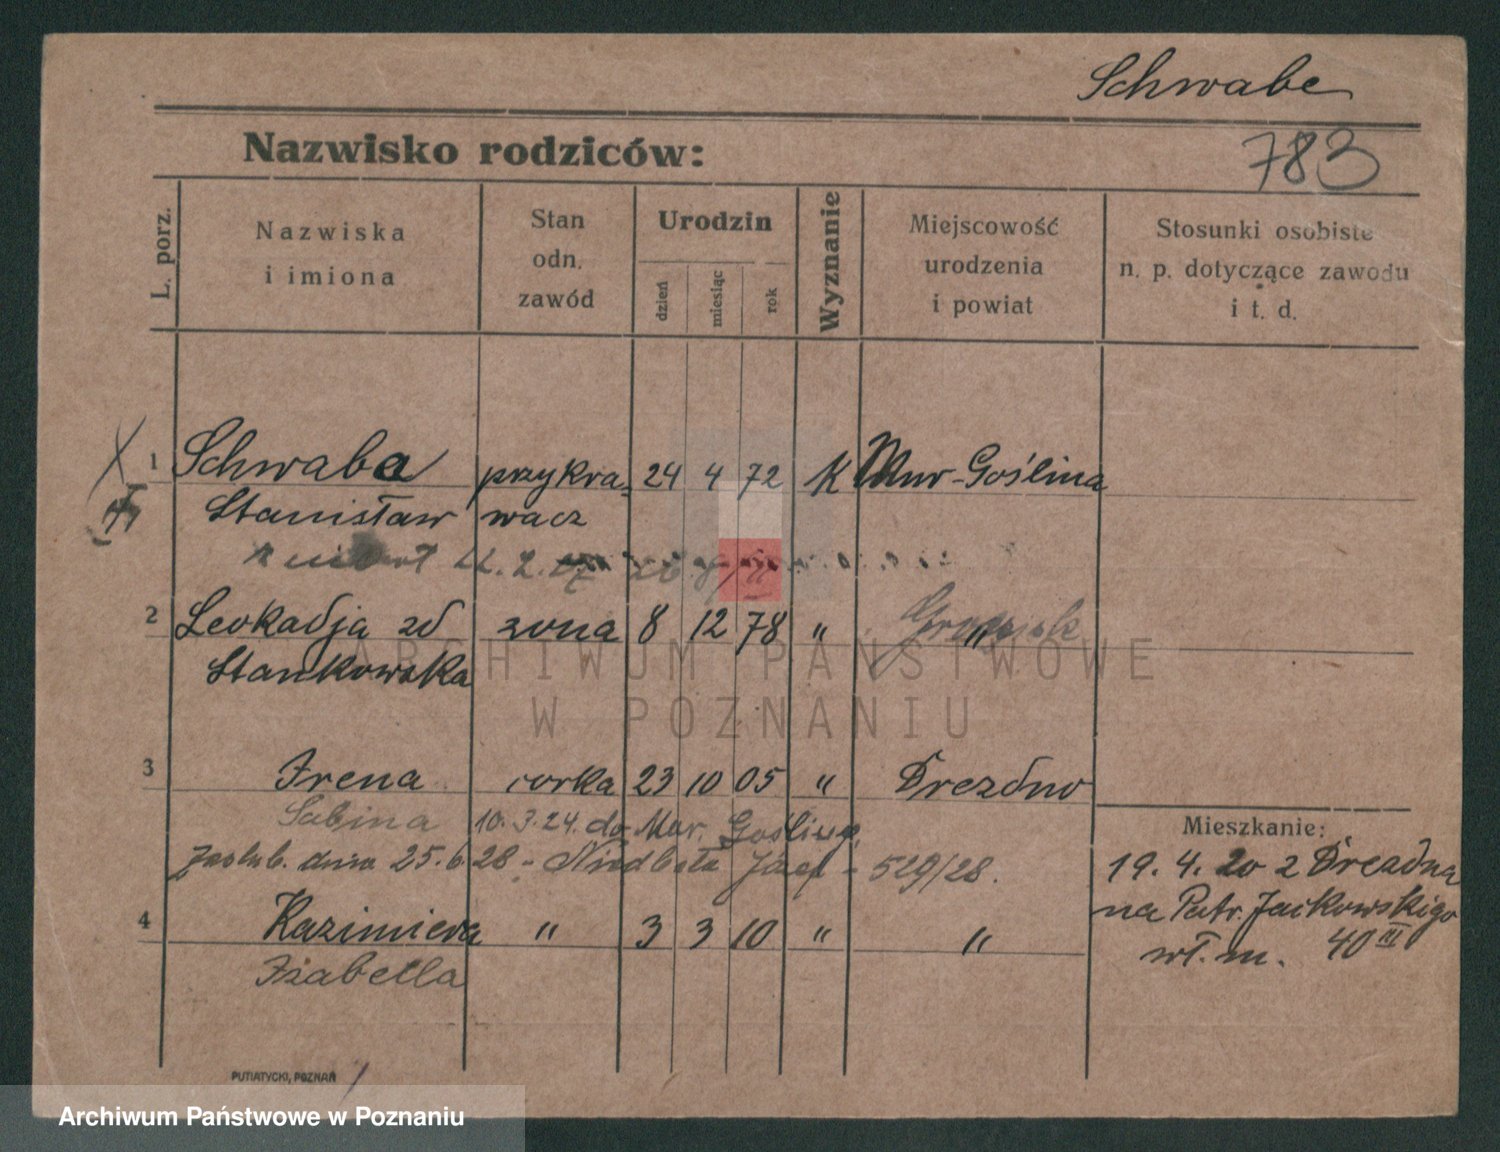 Schwabe
Nazwisko rodziców:
783
L. porz.
Nazwiska
i imiona
Stan
odn.
zawód
Urodzin
dzień
miesiąc
rok
Wyznanie
Miejscowość
urodzenia
i powiat
Stosunki osobiste
n. p. dotyczące zawodu
i t. d.
1 Schwabe przykra= 24 4 72 K Mur-Goślina
Stanisław wacz
2 Leokadja zd żona 8 12 78 "
Stankowska
3 Irena córka 23 10 05 " Drezdno
Sabina 10. 3. 24. do Mur. Gośliny
zaślub. dnia 25. 6. 28 - Niedbała Józef - 529/28.
4 Kazimiera " 3 3 10 " "
Izabella
Mieszkanie:
19. 4. 20 z Drezdna
na Patr. Jackowskigo
wł. m. 40 III
PUTIATYCKI, POZNAŃ
ARCHIWUM PAŃSTWOWE
W POZNANIU
Archiwum Państwowe w Poznaniu